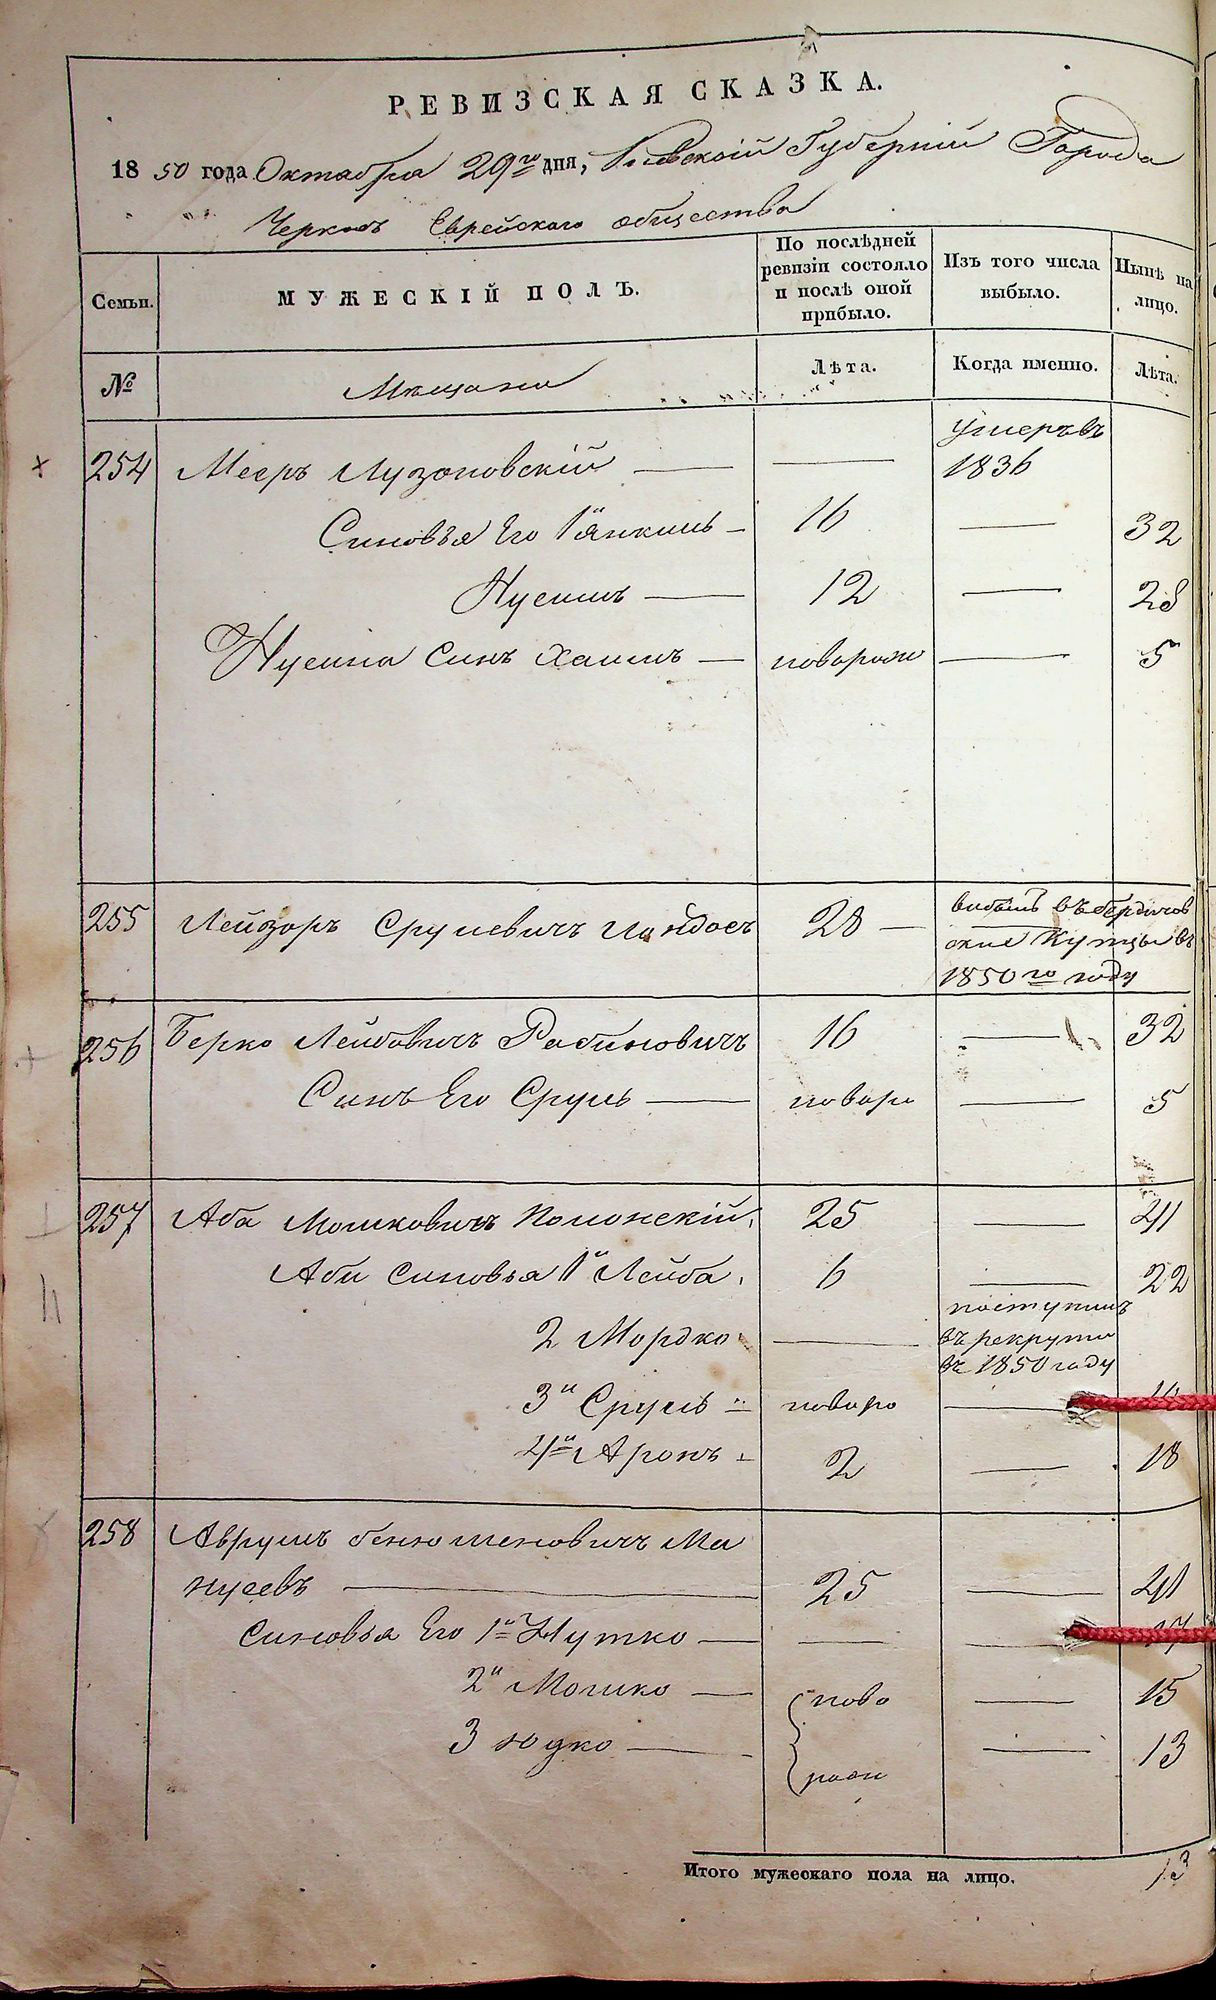 РЕВИЗСКАЯ СКАЗКА.
1850 года Октября 29го дня, Киевской Губернии Города
Черкасъ Еврейскаго общества
Семьи. МУЖЕСКІЙ ПОЛЪ. По послѣдней ревизіи состояло и послѣ оной прибыло. Изъ того числа выбыло. Нынѣ на лицо.
№ Мещани Лѣта. Когда именно. Лѣта.
умеръ въ
254 Меер Лузановскій — — 1836
Синовъя Его 1й Янкиль — 16 — 32
Нусимъ — 12 — 28
Нусима Синъ Хаимъ — новорож — 5
255 Лейзоръ Срулевичъ Ландосъ 28 — выбылъ въ бердичов
ские Купцы въ
1850го году
256 Берко Лейбовичъ Рабиновичъ 16 — 32
Синъ Его Сруль — новоро — 5
257 Аба Мошковичъ Полонскій 25 — 41
Аби синовья 1й Лейба 6 — 22
2 Мордко — поступилъ
въ рекруты
въ 1850 году
3й Сруль — новоро —
4й Аронъ — 2 — 18
258 Аврумъ бенюменовичъ Ма
нусевъ — 25 — 41
синовья Его 1й Нутко — — — 17
2й Мошко — ново — 15
3 юдко — рож — 13
Итого мужескаго пола на лицо. 13